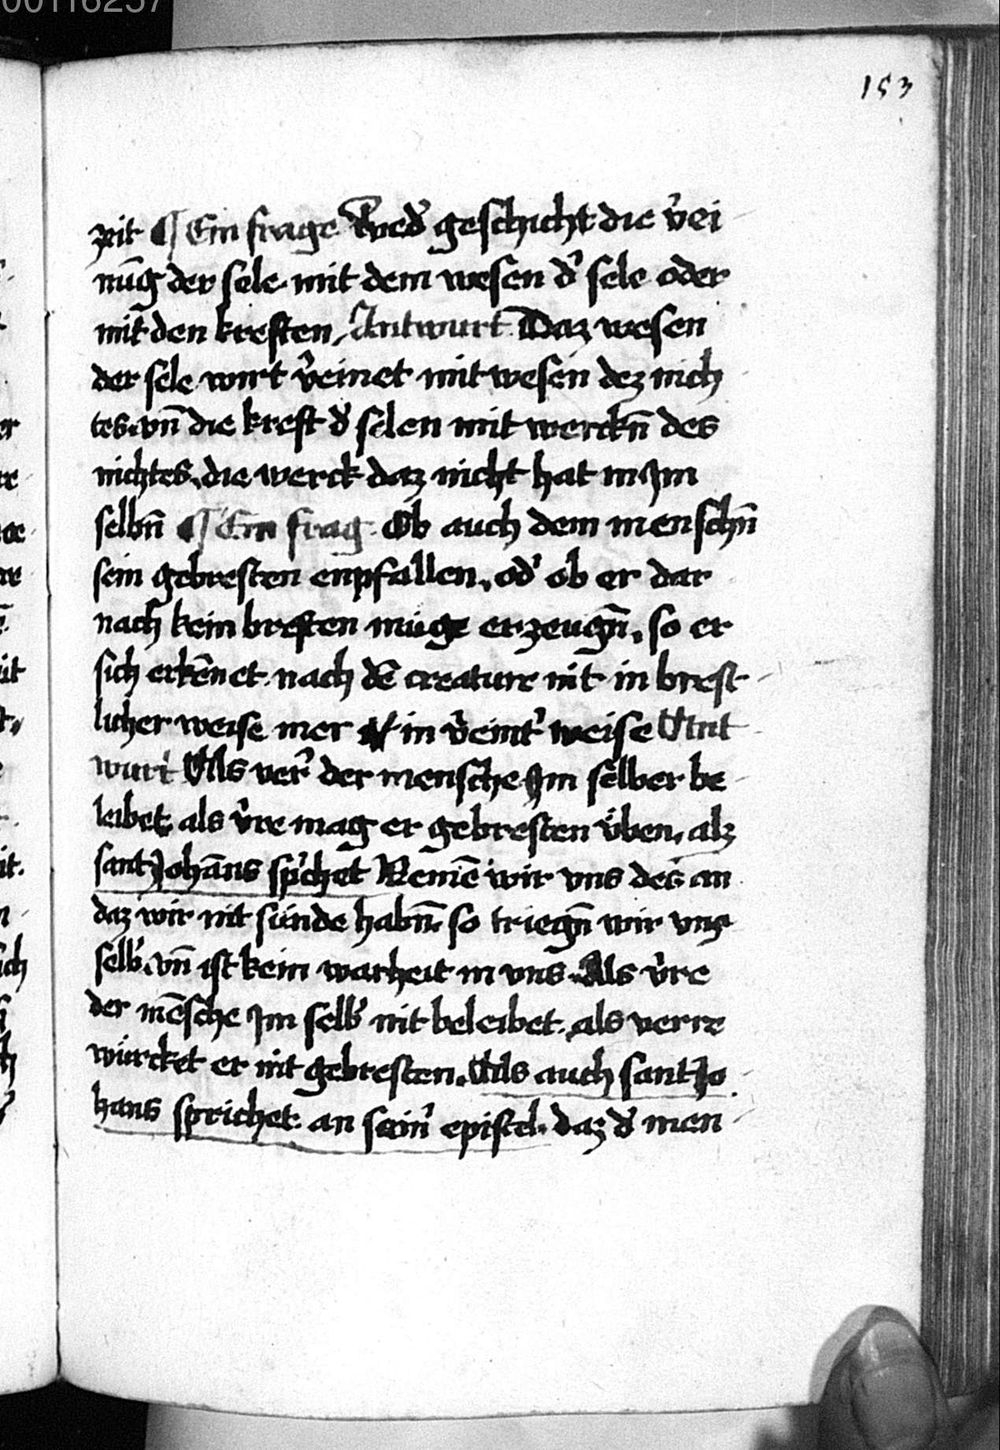 153
zeit ¶ Ein frage Wed' geschicht die v'ei
nūg der sele mit dem wesen d' sele oder
mit den kreften, Antwurt Daz wesen
der sele wirt v'einet mit wesen dez nich
tes. vn̄ die kreft d' selen mit werckn̄ des
nichtes. die werck daz nicht hat in Jm
selbn̄ ¶ Ein frag Ob auch dem menschn̄
sein gebresten enpfallen. od' ob er dar
nach kein bresten müge erzeugn̄. so er
sich erkēnet nach dē creature nit in brest
licher weise mer in v'eint' weise Ant
wurt Als ver' der mensche Jm selber be
leibet als v're mag er gebresten üben. alz
sant Johāns sp'chet Nemē wir vns des an
daz wir nit sünde habn̄. so triegn̄ wir vns
selb'. vn̄ ist kein warheit in vns. Als v're
der mēsche Jm selb' nit beleibet. als verre
würcket er nit gebresten. Als auch sant Jo
hans sprichet an sein' epistel. daz d' men